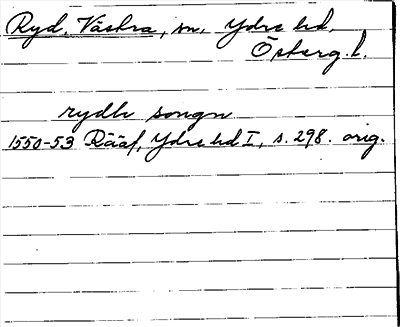 Ryd, Västra, sn, Ydre hd.
Österg. l.
rydh songn
1550-53 Rääf, Ydre hd I, s. 298. orig.